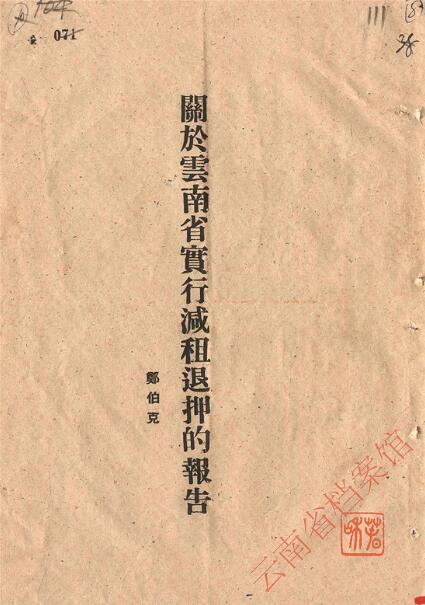 071
111
關於雲南省實行減租退押的報告
鄭伯克
云南省档案馆